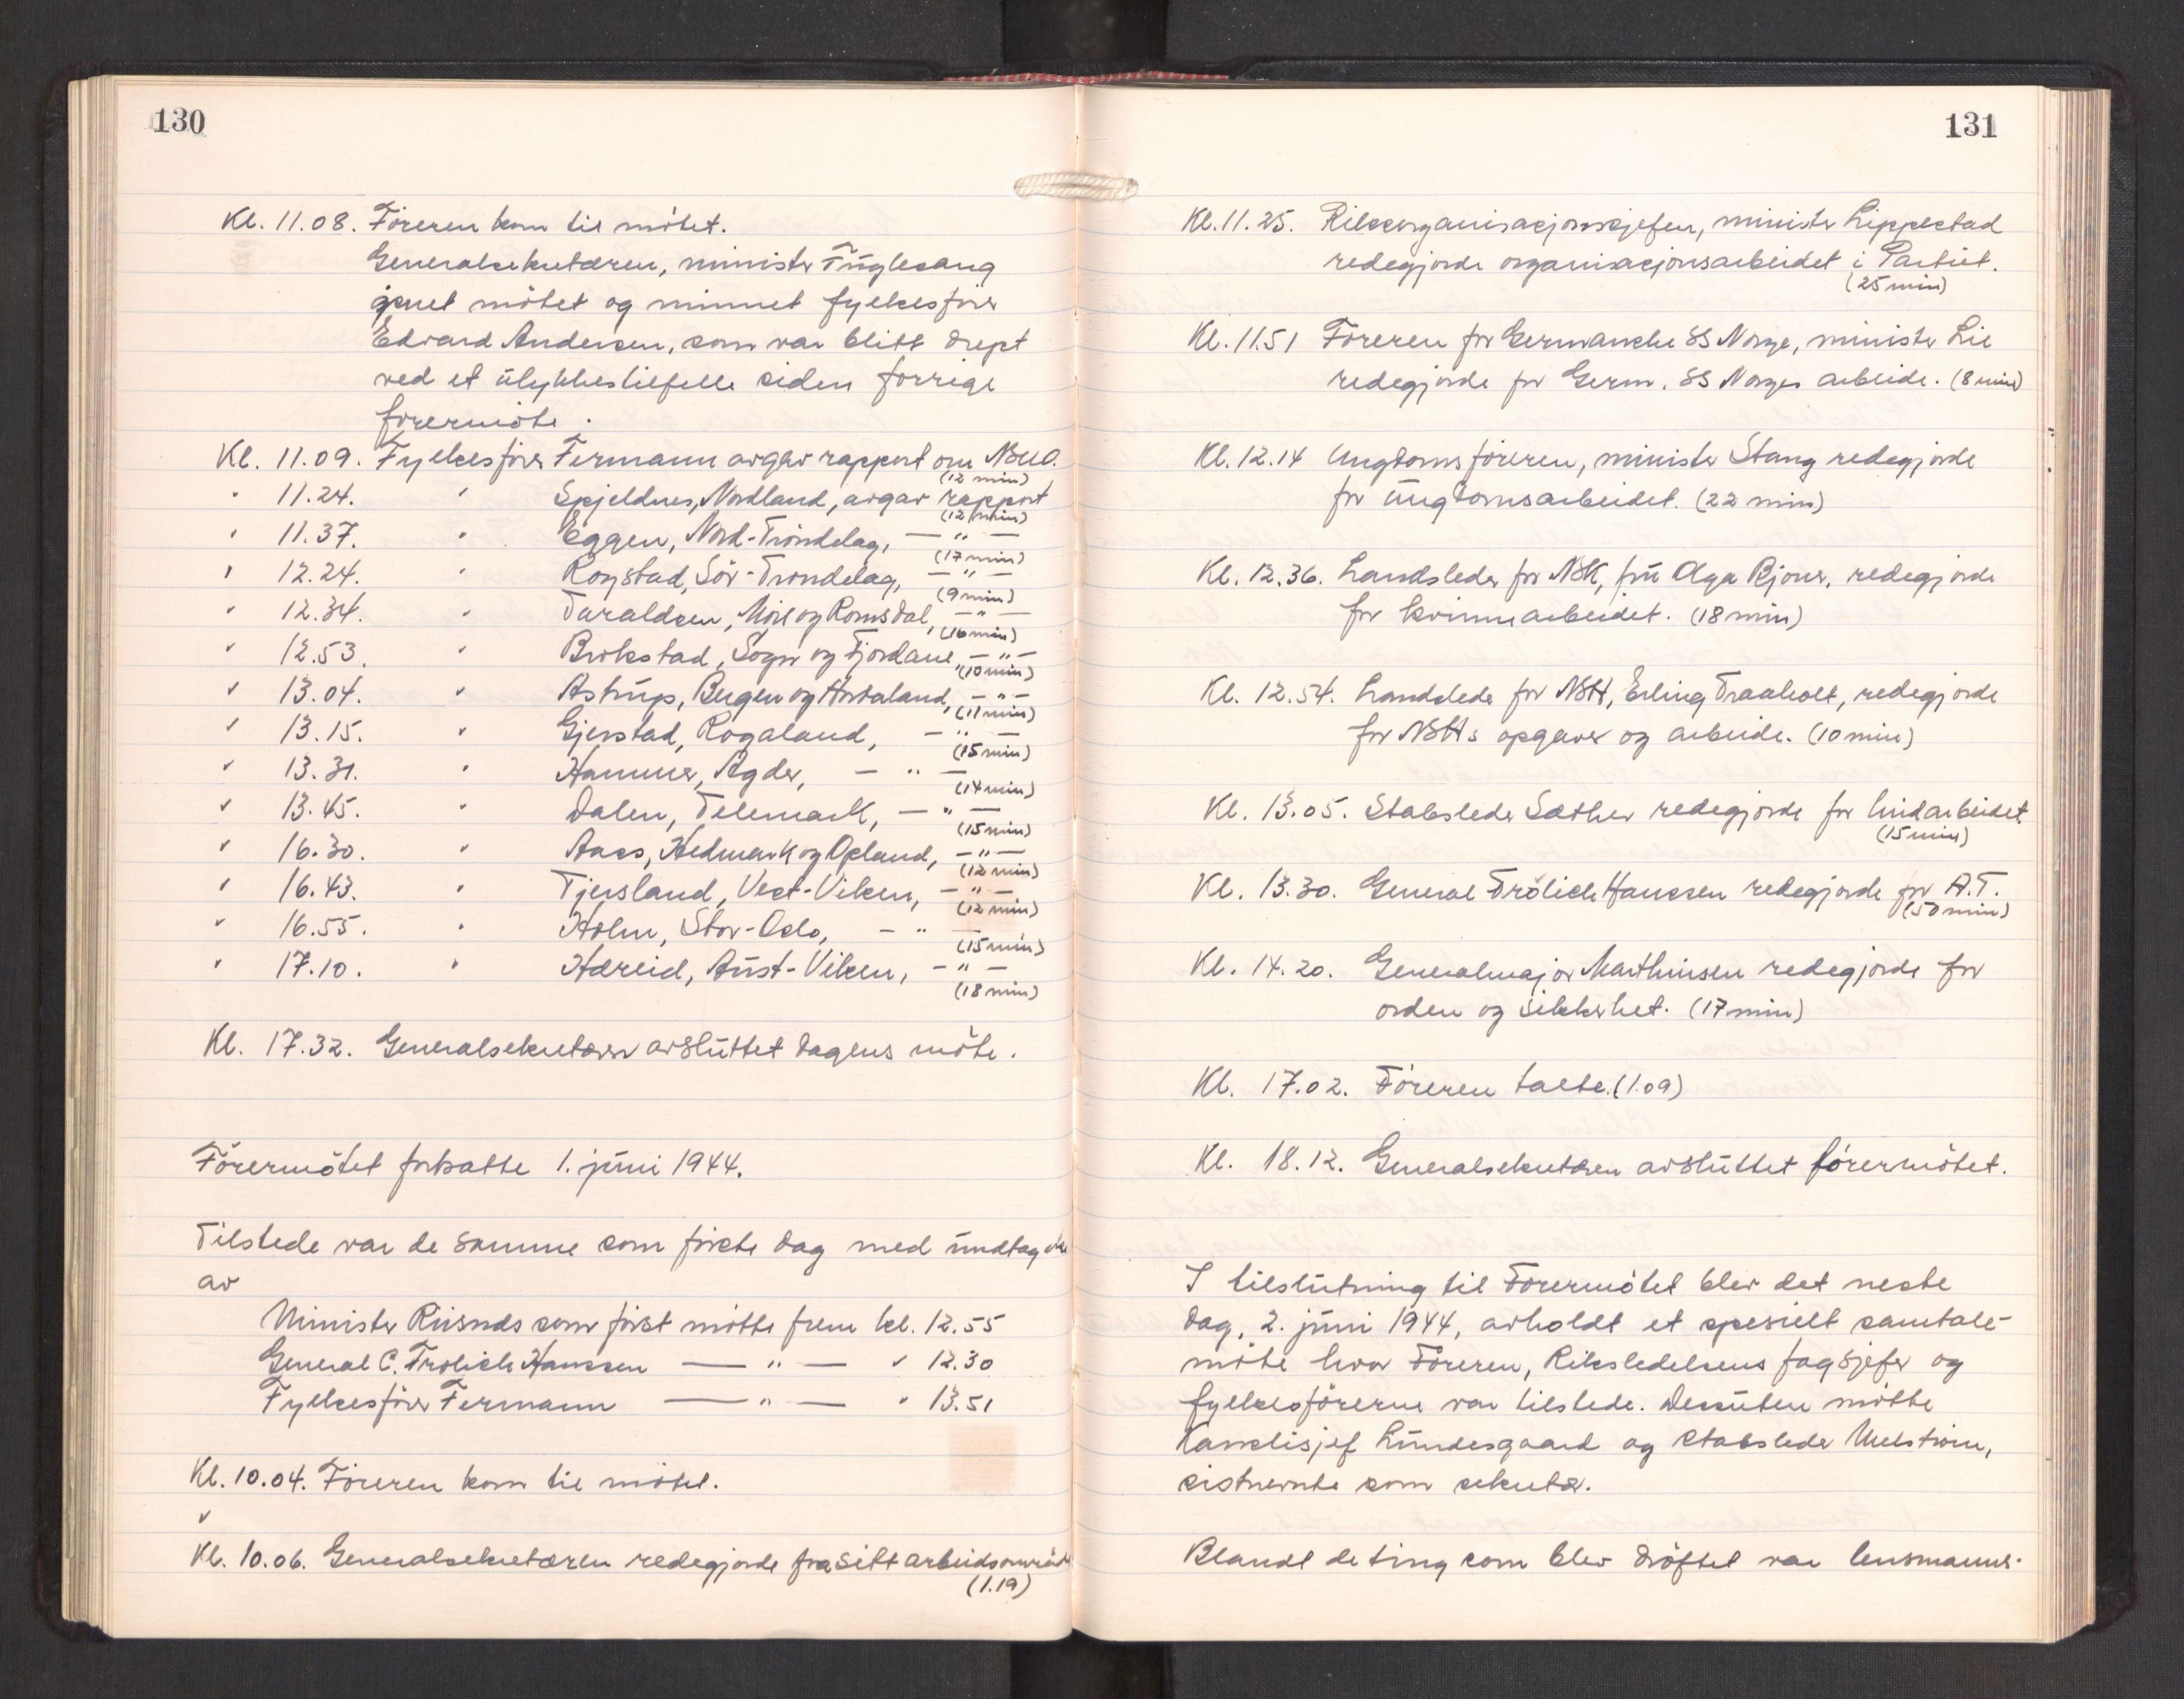 130
Kl. 11.08. Föreren kom til mötet.
Generalsekretæren, minister Fuglesang
åpnet mötet og minnet fylkesförer
Edvard Andersen, som var blitt drept
ved et ulykkestilfelle siden forrige
förermöte.
Kl. 11.09. Fylkesförer Fermann avgav rapport om NSUO.
(12 min)
" 11.24. " Skjeldnes, Nordland, avgav rapport
(12 min)
" 11.37. " Eggen, Nord-Tröndelag, — " —
(17 min)
" 12.24. " Rogstad, Sör-Tröndelag, — " —
(9 min)
" 12.34. " Taraldsen, Möre og Romsdal, — " —
(16 min)
" 12.53. " Brokstad, Sogn og Fjordane, — " —
(10 min)
" 13.04. " Astrup, Bergen og Hordaland, — " —
(11 min)
" 13.15. " Gjerstad, Rogaland, — " —
(15 min)
" 13.31. " Hammer, Agder, — " —
(14 min)
" 13.45. " Dalen, Telemark, — " —
(15 min)
" 16.30. " Aass, Hedmark og Opland, — " —
(12 min)
" 16.43. " Tjersland, Vest-Viken, — " —
(12 min)
" 16.55. " Holm, Stor-Oslo, — " —
(15 min)
" 17.10. " Hæreid, Aust-Viken, — " —
(18 min)
Kl. 17.32. Generalsekretæren avsluttet dagens möte.
Förermötet fortsatte 1. juni 1944.
Tilstede var de samme som förste dag med undtagelse
av
Minister Riisnæs som först mötte frem kl. 12.55
General C. Frölich Hanssen — " — " 12.30
Fylkesförer Fermann — " — " 13.51
Kl. 10.04. Föreren kom til mötet.
"
Kl. 10.06. Generalsekretæren redegjorde fra sitt arbeidsområde
(1.19)
131
Kl. 11.25. Riksorganisasjonssjefen, minister Lippestad
redegjorde organisasjonsarbeidet i Partiet.
(25 min)
Kl. 11.51 Föreren for Germanske SS Norge, minister Lie
redegjorde for Germ. SS Norges arbeide. (8 min)
Kl. 12.14 Ungdomsföreren, minister Stang redegjorde
for Ungdomsarbeidet. (22 min)
Kl. 12.36. Landsleder for NSK, fru Olga Bjoner, redegjorde
for kvinnearbeidet. (18 min)
Kl. 12.54. Landsleder for NSH, Erling Traaholt, redegjorde
for NSHs opgaver og arbeide. (10 min)
Kl. 13.05. Stabsleder Sæther redegjorde for hirdarbeidet.
(15 min)
Kl. 13.30. General Frölich Hanssen redegjorde for A.T.
(50 min)
Kl. 14.20. Generalmajor Marthinsen redegjorde for
orden og sikkerhet. (17 min)
Kl. 17.02. Föreren talte. (1.09)
Kl. 18.12. Generalsekretæren avsluttet förermötet.
I tilslutning til Förermötet blev det neste
dag, 2. juni 1944, avholdt et spesielt samtale-
möte hvor Föreren, Riksledelsens fagsjefer og
fylkesförerne var tilstede. Dessuten mötte
Kanslisjef Lundesgaard og stabsleder Meldström,
sistnevnte som sekretær.
Blandt de ting som blev dröftet var lensmanns-